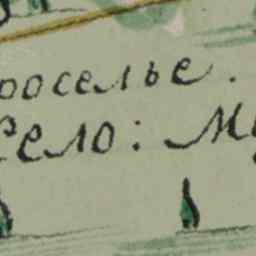 ооселье.
Село: М